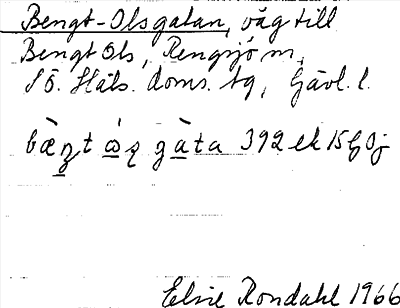 Bengt-Olsgatan, väg till
Bengt Ols, Rengsjö sn,
SÖ. Häls. doms. tg, Gävl. l.
bæ̀ṉt gàta 392 ek
Elsie Rondahl 1966